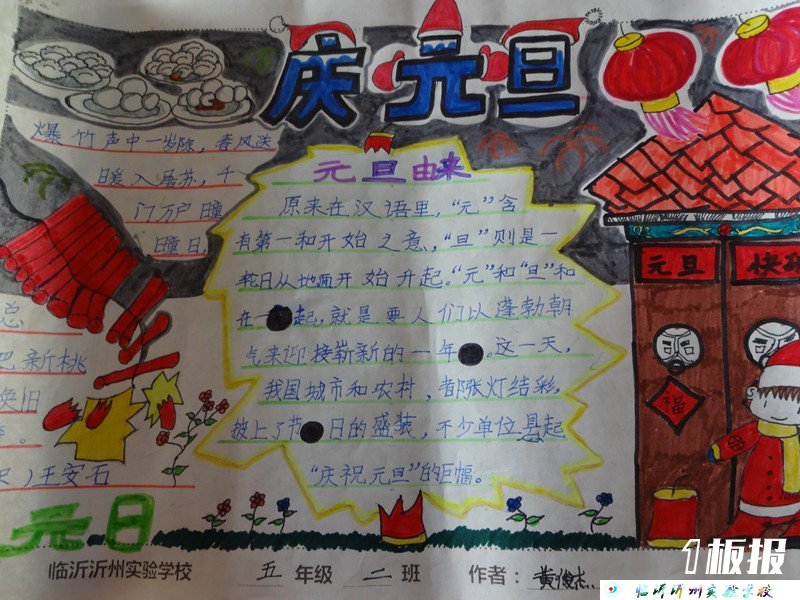 庆元旦
爆竹声中一岁除，春风送
暖入屠苏，千
门万户曈
曈日，
总
把新桃
换旧
。
宋）王安石
元日
元旦由来
原来在汉语里，“元”含
有第一和开始之意，“旦”则是一
轮日从地面开始升起。“元”和“旦”和
在一起，就是要人们以蓬勃朝
气来迎接崭新的一年。这一天，
我国城市和农村，都张灯结彩，
披上了节日的盛装，不少单位悬起
“庆祝元旦”的巨幅。
元旦
快
福
临沂沂州实验学校 五年级 二班 作者：黄俊杰
1板报
临沂沂州实验学校